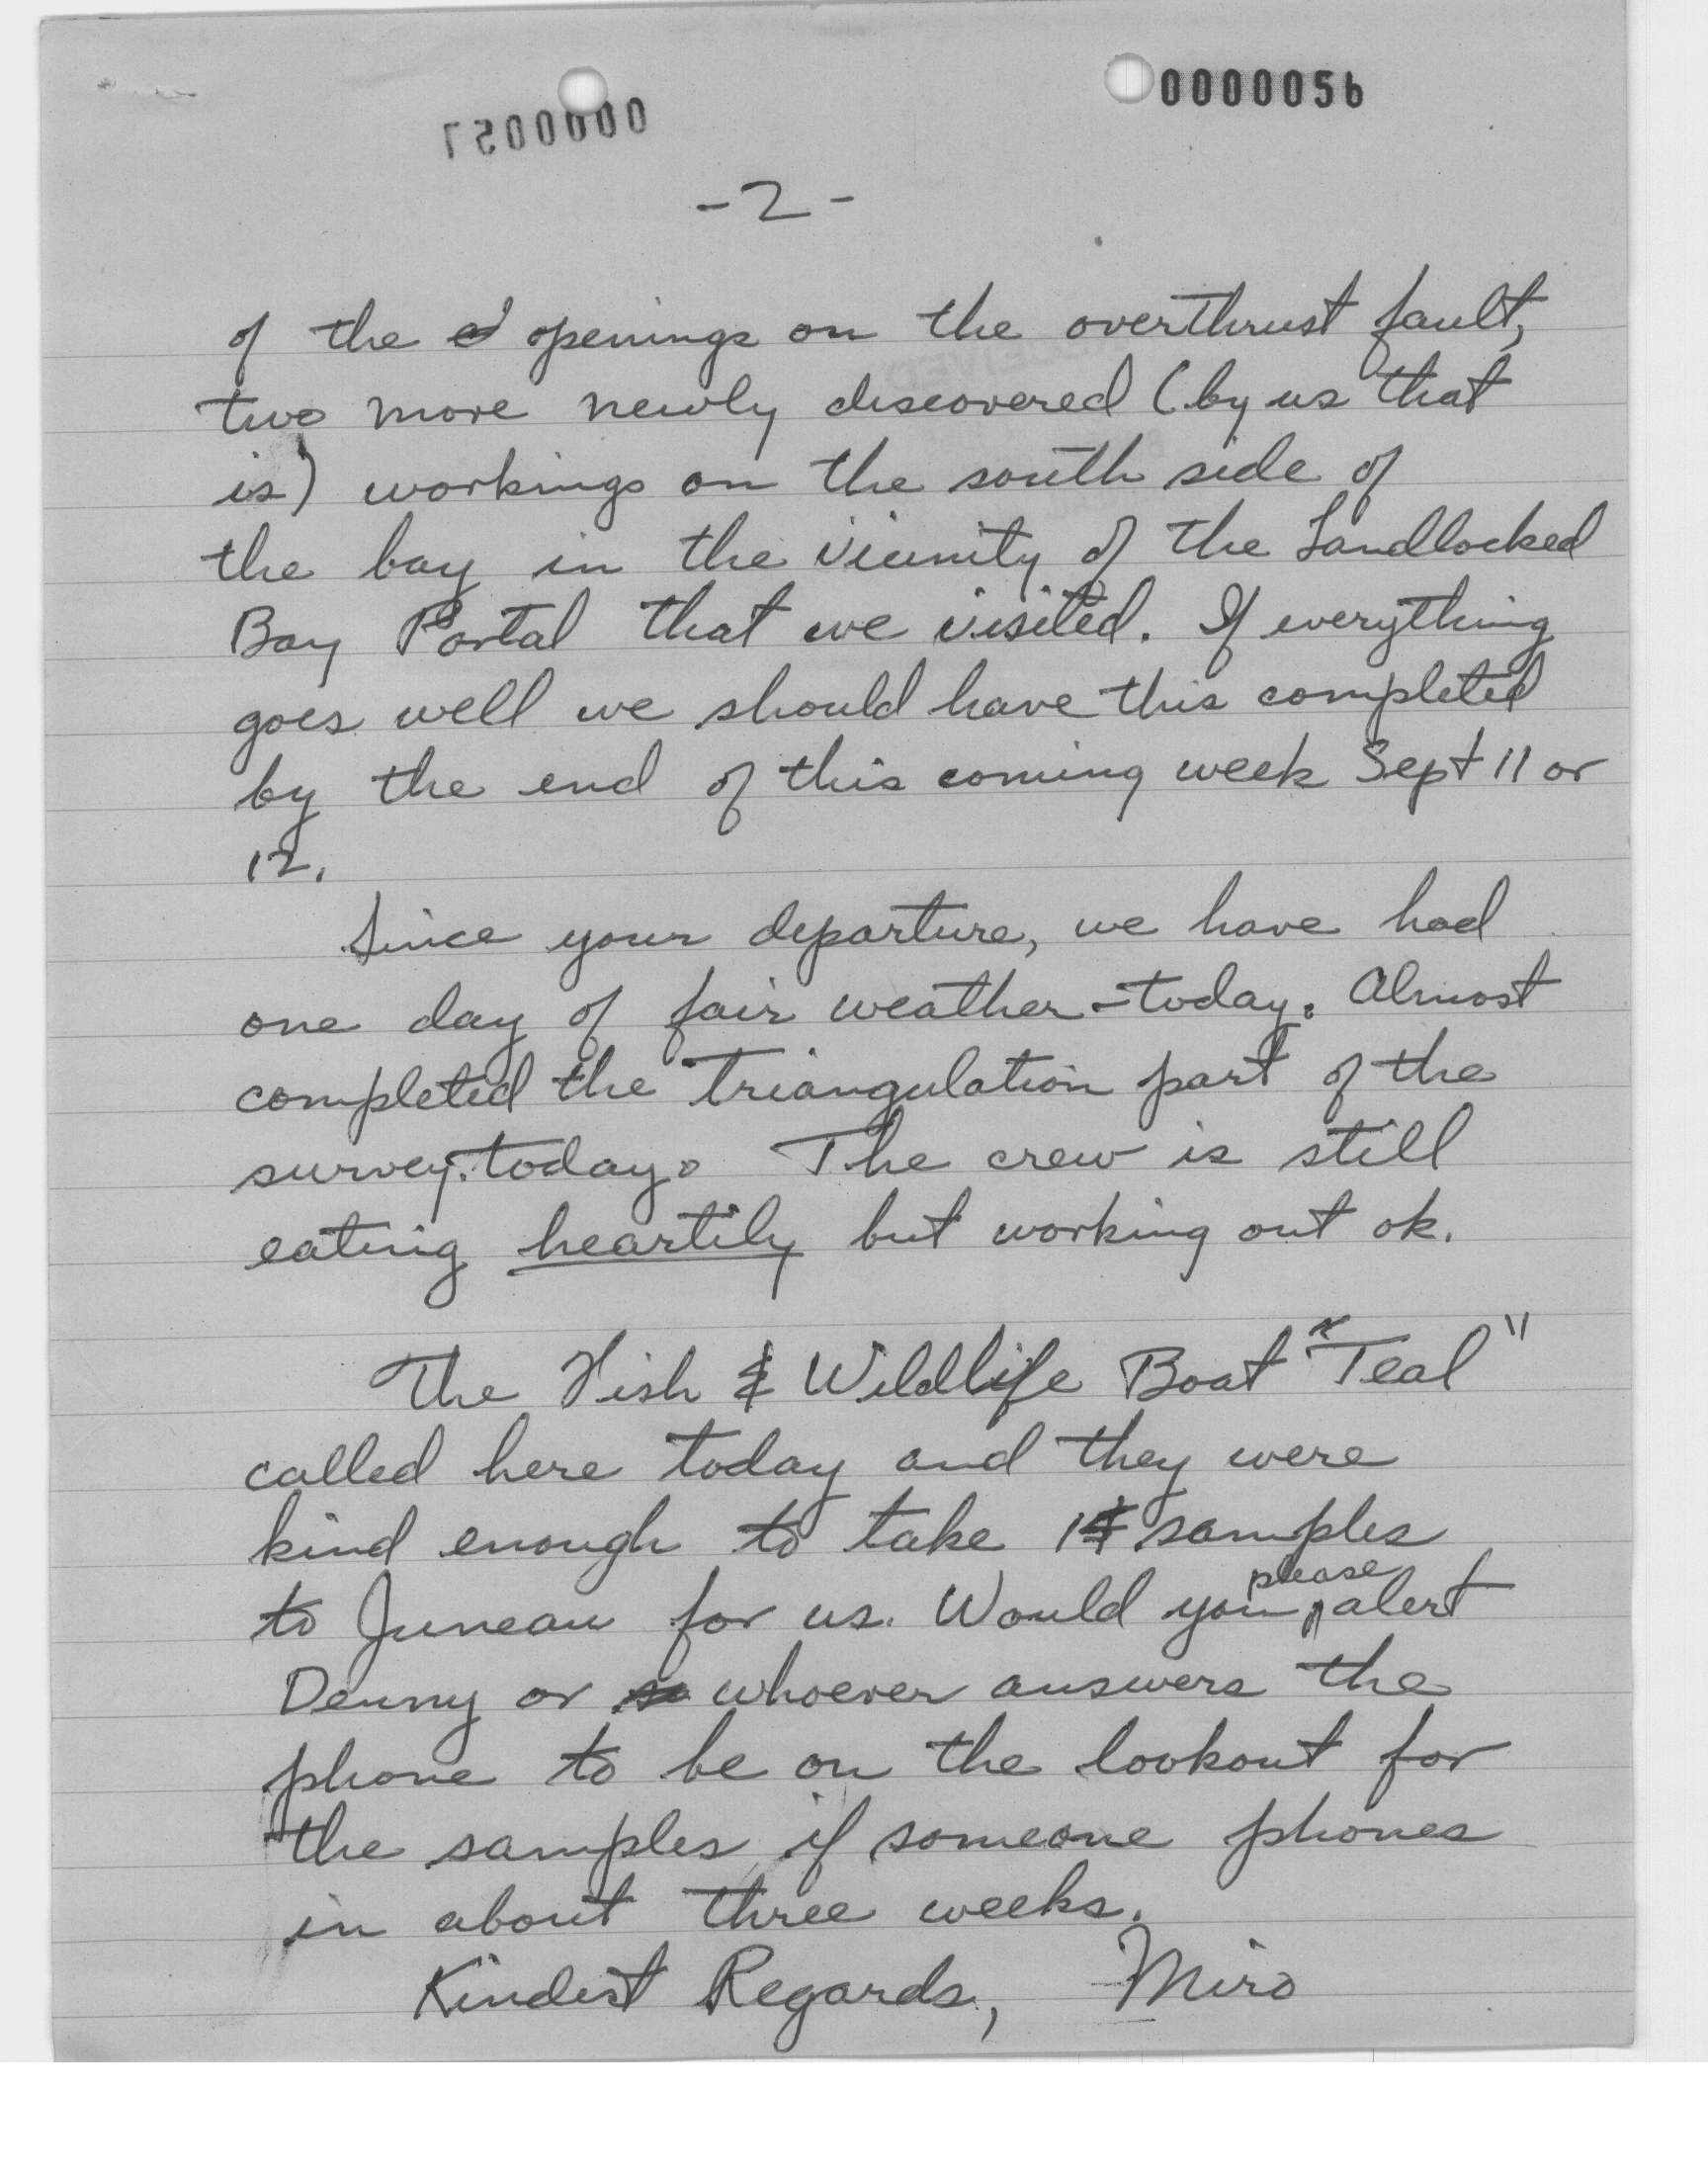 0000056
0000057
-2-
of the openings on the overthrust fault,
two more newly discovered (by us that
is) workings on the south side of
the bay in the vicinity of the Landlocked
Bay Portal that we visited. If everything
goes well we should have this completed
by the end of this coming week Sept 11 or
12.
Since your departure, we have had
one day of fair weather - today. Almost
completed the triangulation part of the
survey today. The crew is still
eating heartily but working out ok.
The Fish & Wildlife Boat "Teal"
called here today and they were
kind enough to take samples
please
to Juneau for us. Would you alert
Denny or whoever answers the
phone to be on the lookout for
the samples if someone phones
in about three weeks.
Kindest Regards, Miro